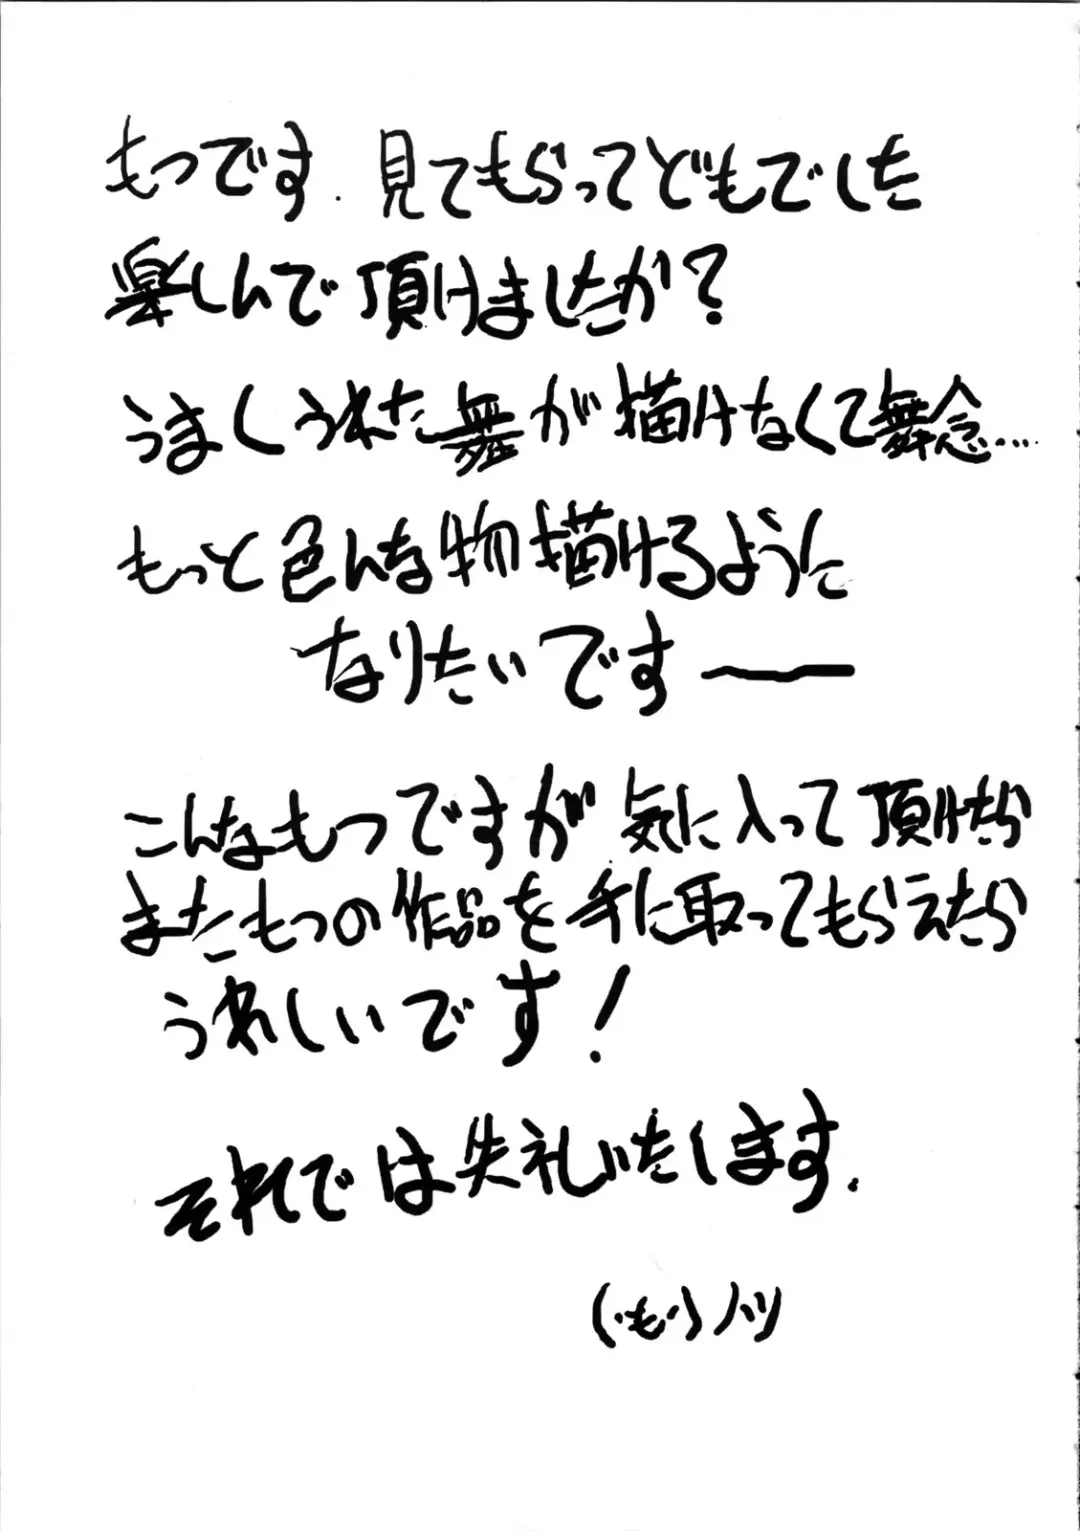 もつです. 見てもらってどもでした
楽しんで頂けましたか?
うまくうれた舞が描けなくて無念....
もっと色んな物描けるように
なりたいです――
こんなもつですが気に入って頂けたら
またもつの作品を手に取ってもらえたら
うれしいです!
それでは失礼いたします.
(・も・)ノシ